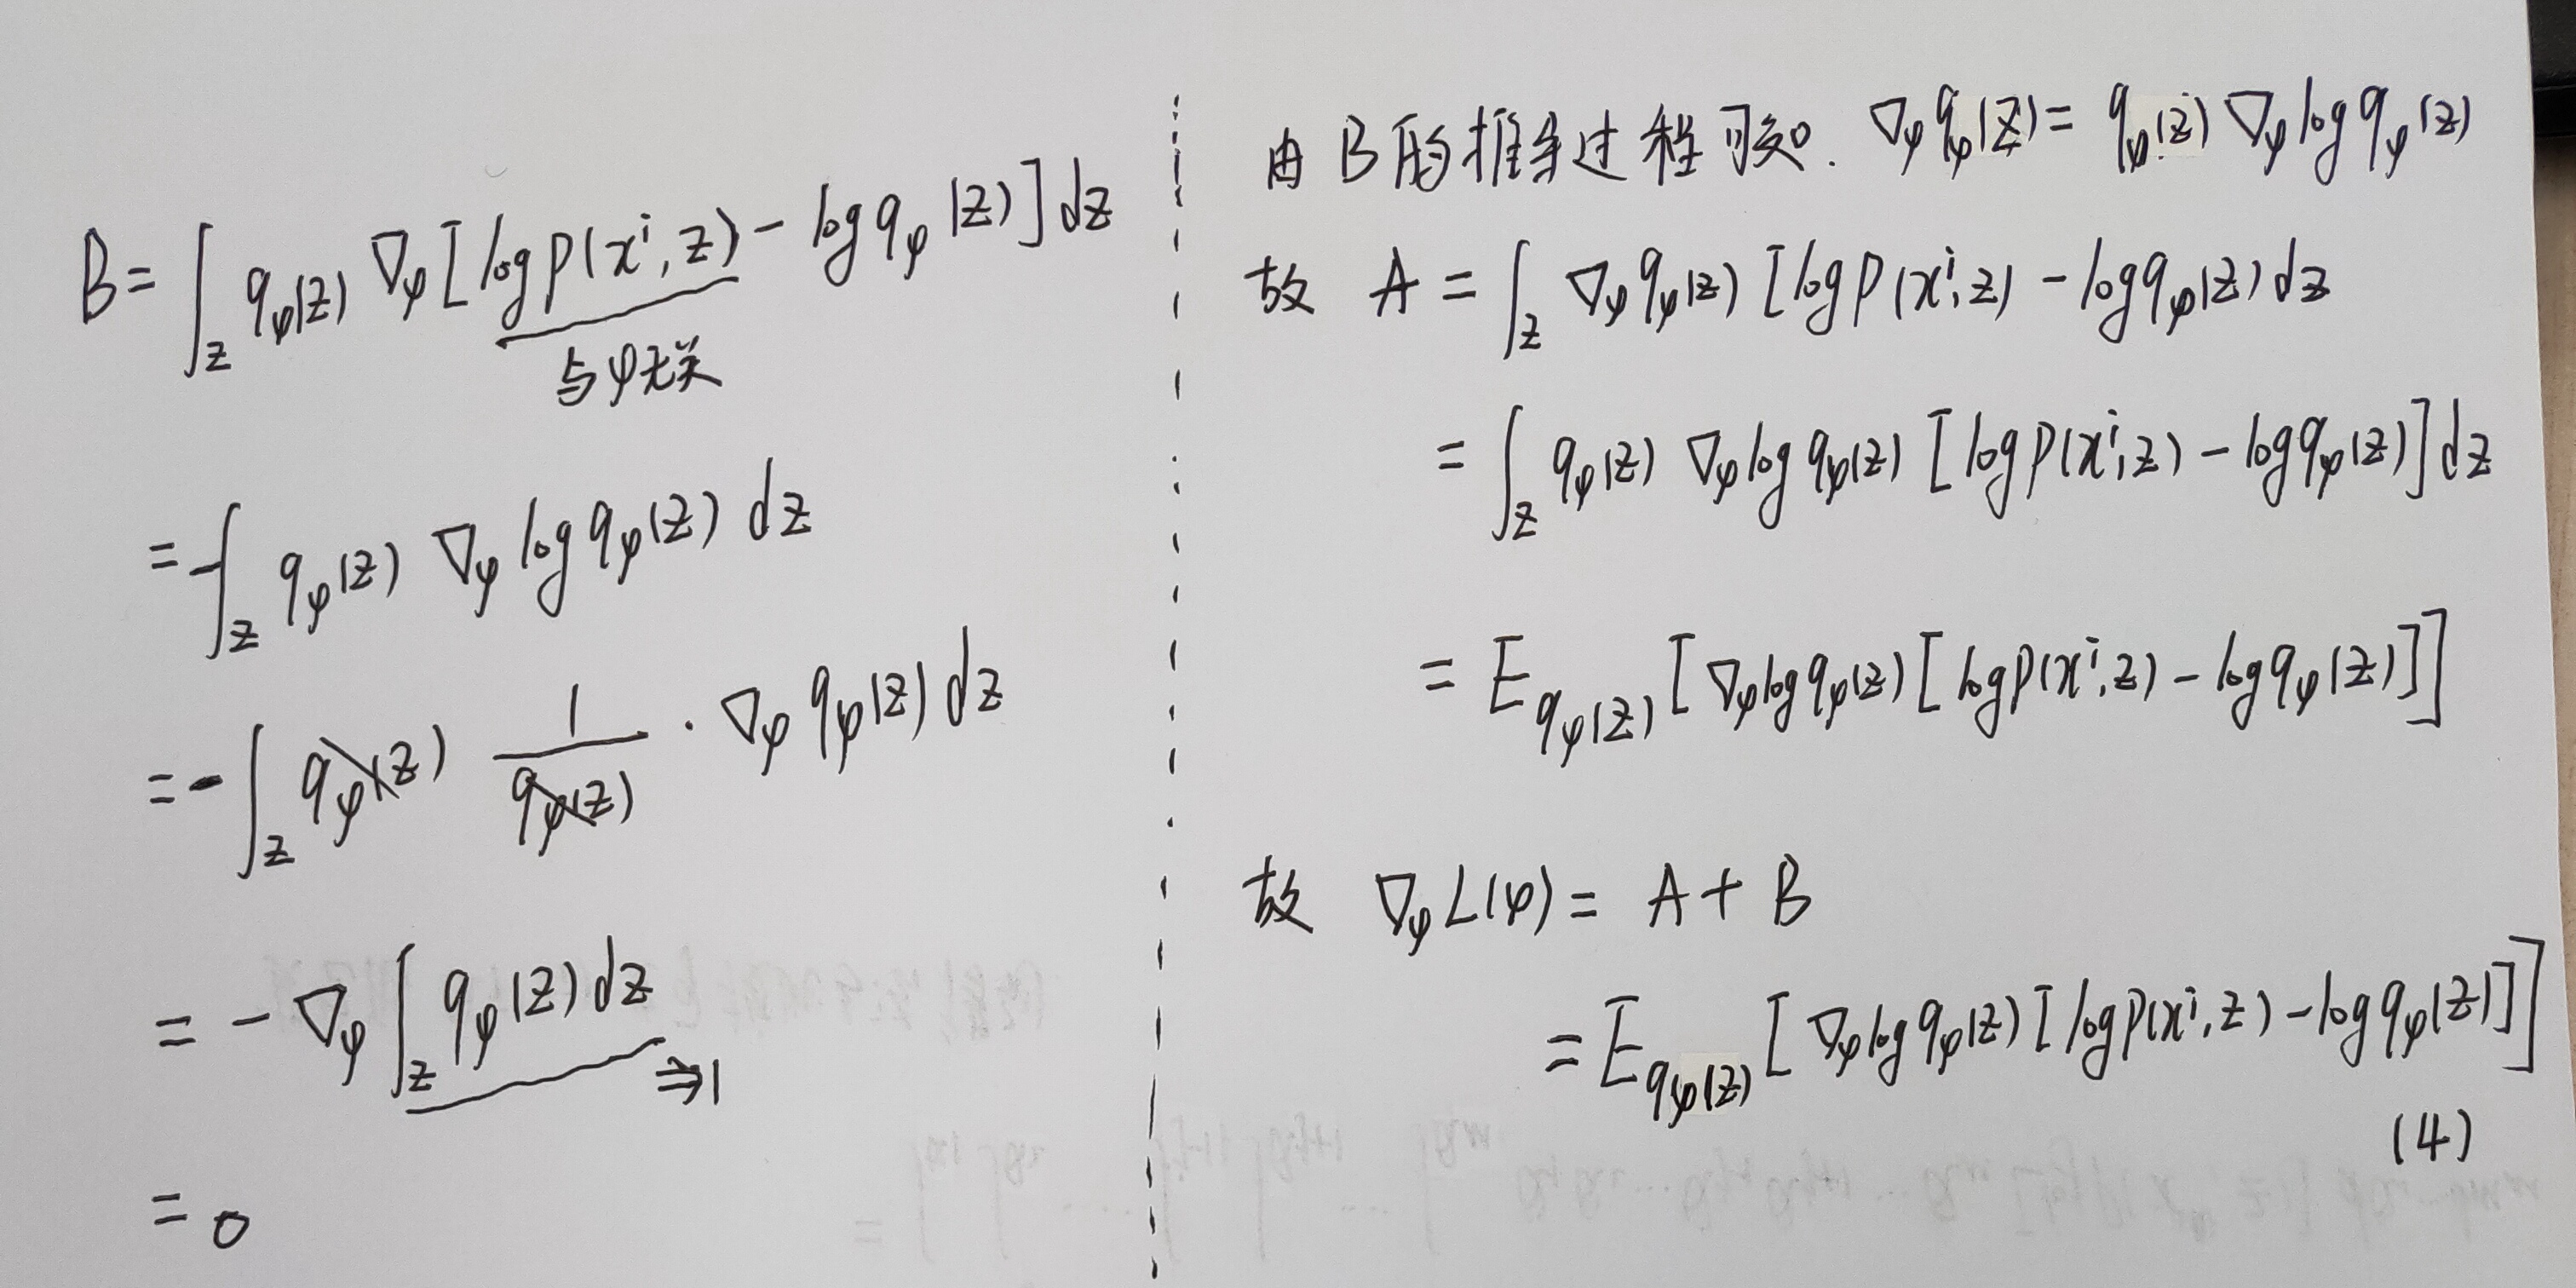 B = ∫_z q_φ(z) ∇_φ [log p(x^i, z) - log q_φ(z)] dz
与φ无关
= -∫_z q_φ(z) ∇_φ log q_φ(z) dz
= -∫_z q_φ(z) 1/q_φ(z) · ∇_φ q_φ(z) dz
= -∇_φ ∫_z q_φ(z) dz
⇒1
= 0
由B的推导过程可知. ∇_φ q_φ(z) = q_φ(z) ∇_φ log q_φ(z)
故 A = ∫_z ∇_φ q_φ(z) [log p(x^i, z) - log q_φ(z) dz
= ∫_z q_φ(z) ∇_φ log q_φ(z) [log p(x^i, z) - log q_φ(z)] dz
= E_{q_φ(z)} [∇_φ log q_φ(z) [log p(x^i, z) - log q_φ(z)]]
故 ∇_φ L(φ) = A + B
= E_{q_φ(z)} [∇_φ log q_φ(z) [log p(x^i, z) - log q_φ(z)]]
(4)